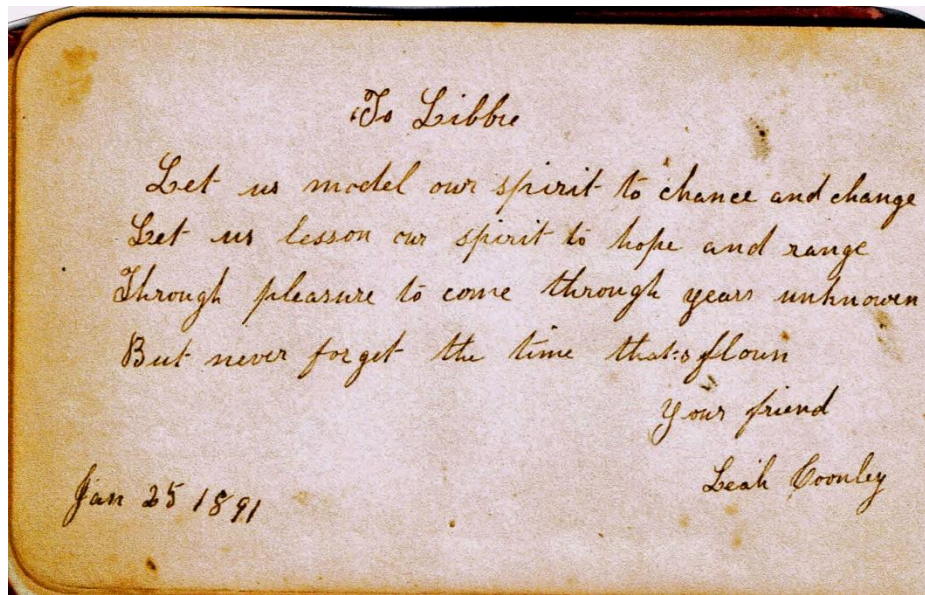 To Libbie
Let us model our spirit to chance and change
Let us lesson our spirit to hope and range
Through pleasure to come through years unknowen
But never forget the time that's flown
Your friend
Leah Coonley
Jan 25 1891